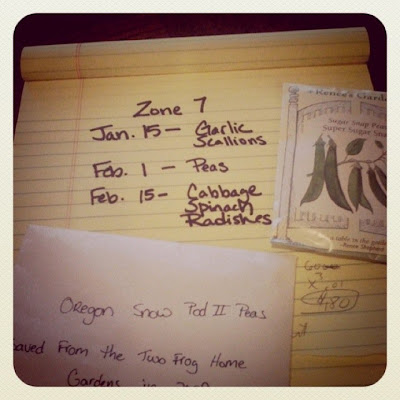 Zone 7
Jan. 15 - Garlic
Scallions
Feb. 1 - Peas
Feb. 15 - Cabbage
Spinach
Radishes
Renee's Garden
Sugar Snap Peas
Super Sugar Snap
Oregon Snow Pod II Peas
saved From the Two Frog Home
Gardens in